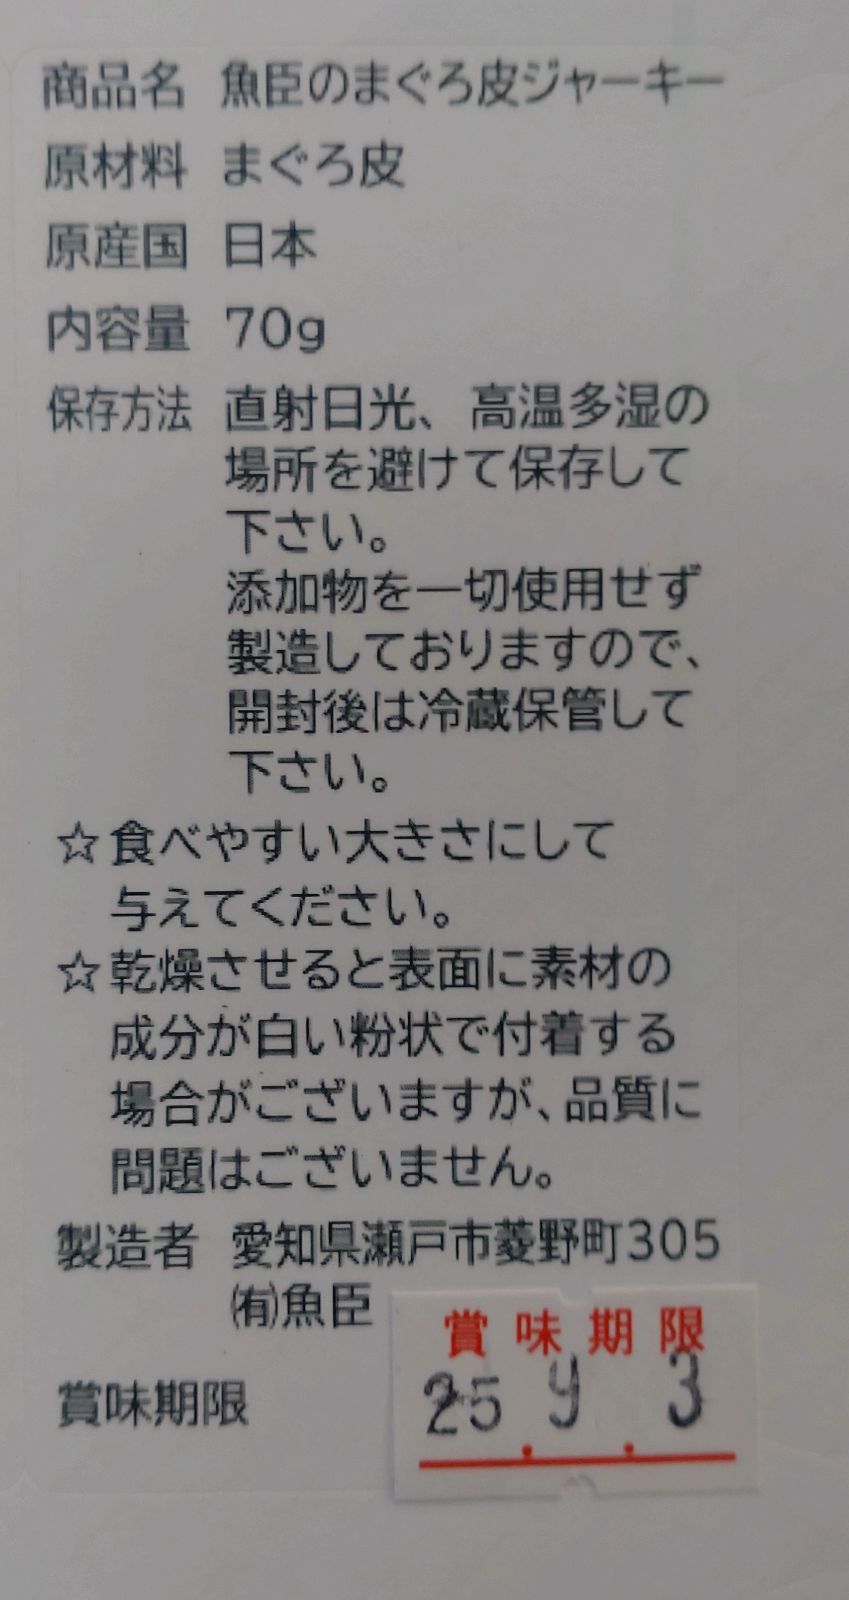 商品名 魚臣のまぐろ皮ジャーキー
原材料 まぐろ皮
原産国 日本
内容量 70g
保存方法 直射日光、高温多湿の
場所を避けて保存して
下さい。
添加物を一切使用せず
製造しておりますので、
開封後は冷蔵保管して
下さい。
☆食べやすい大きさにして
与えてください。
☆乾燥させると表面に素材の
成分が白い粉状で付着する
場合がございますが、品質に
問題はございません。
製造者 愛知県瀬戸市菱野町305
㈲魚臣
賞味期限
賞味期限
25.9.3